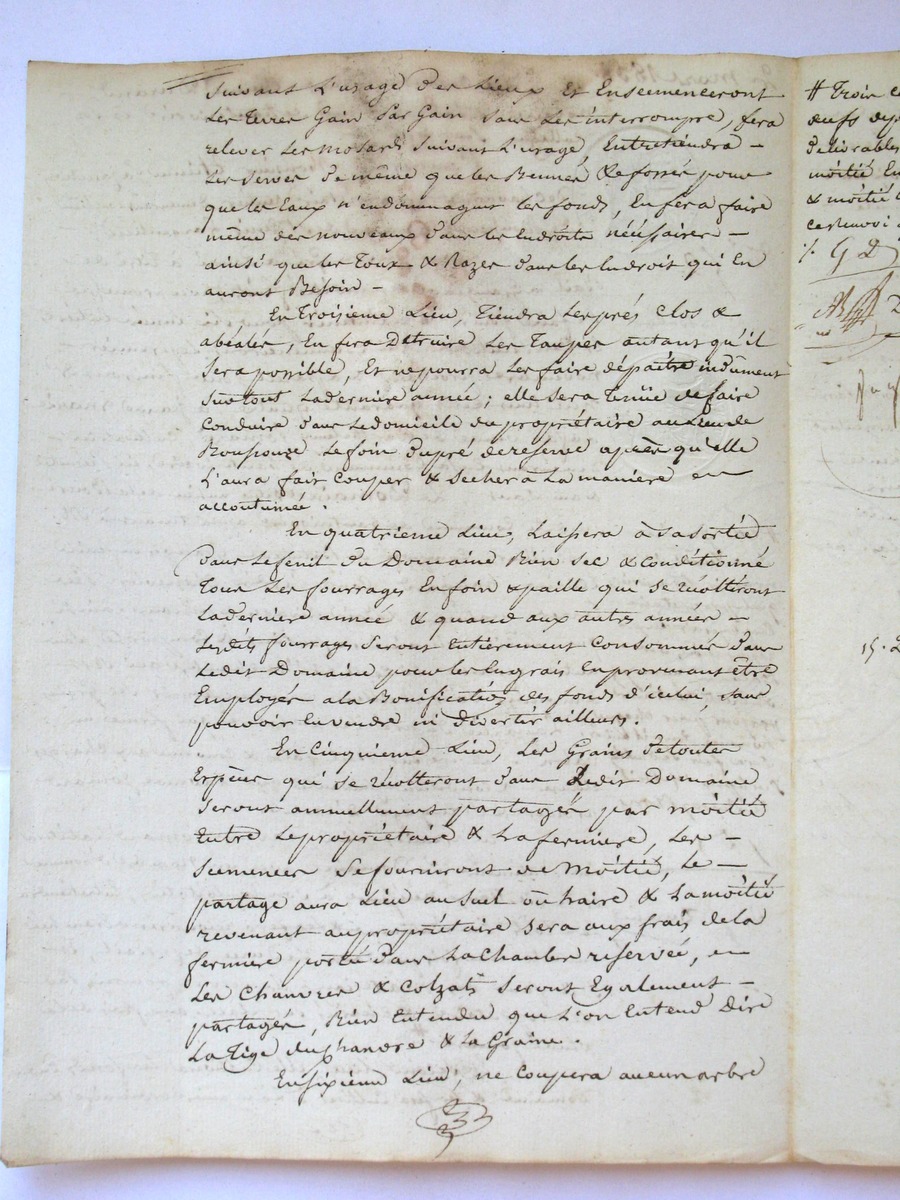 suivant l'usage des Lieux Et Ensemenceront
Les Terres Gain Par Gain sans Les interrompre, fera
relever Les mosards suivant L'usage, Entretiendra –
Les serves de même que les Bennes & fossés pour
que les Eaux n'endommagent les fonds, En fera faire
même des nouveaux dans les Endroits nécéssaires –
ainsi que les Toux & Razes dans les Endroit qui En
auront Besoin –
En Troisieme Lieu, Tiendra les prés Clos &
abéalés, En fera Détruire Les Taupes autant qu'il
sera possible, Et ne pourra Les faire dépaitre indûment
surtout La derniere année ; elle sera tenüe de faire
Conduire dans Le domicile du propriétaire au Lieu de
Le foin du pré de reserve après qu'elle
L'aura fait Couper & secher à La maniere
accoutumée.
En quatrieme Lieu, Laissera à sa sortie
dans Le fenil du Domaine Bien sec & Conditionné
Tous Les fourrages En foin & paille qui se récolteront
La derniere année & quand aux autres années –
Lesdits fourrages seront Entièrement Consommés dans
Ledit Domaine pour les Engrais En provenant être
Employés a la Bonification des fonds d'icelui, sans
pouvoir En vendre ni divertir ailleurs.
En Cinquieme Lieu, Les Grains de toutes
Espèces qui se récolteront dans Ledit Domaine
seront annuellement partagés par moitié
Entre Le propriétaire & La fermiere, Les –
semences se fourniront de moitié, Le –
partage aura Lieu au suel ou haire & La moitié
revenant au propriétaire sera aux frais de la
fermiere porté dans La Chambre réservée,
Les Chanvres & Colzats seront Egalement –
partagés, Bien Entendu que L'on Entend Dire
La Tige du Chanvre & La Graine.
En sixieme Lieu, ne Coupera aucun arbre
# Trois
œufs
délivrables
moitié En
& moitié
ce renvoi
G D
15.